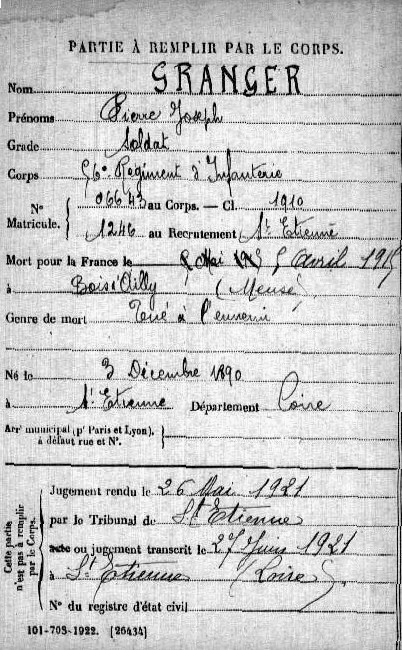 PARTIE À REMPLIR PAR LE CORPS.
Nom GRANGER
Prénoms Pierre Joseph
Grade Soldat
Corps 56e Régiment d'Infanterie
N° Matricule. { 06643 au Corps. — Cl. 1910
1246 au Recrutement St Etienne
Mort pour la France le 5 Mai 5 avril 1915
à Bois d'Ailly (Meuse)
Genre de mort Tué à l'ennemi
Né le 3 Décembre 1890
à St Etienne Département Loire
Arrt municipal (pr Paris et Lyon), à défaut rue et N°.
Cette partie n'est pas à remplir par le Corps.
Jugement rendu le 26 Mai 1921
par le Tribunal de St Etienne
acte ou jugement transcrit le 27 Juin 1921
à St Etienne (Loire)
N° du registre d'état civil
101-708-1922. [26434]